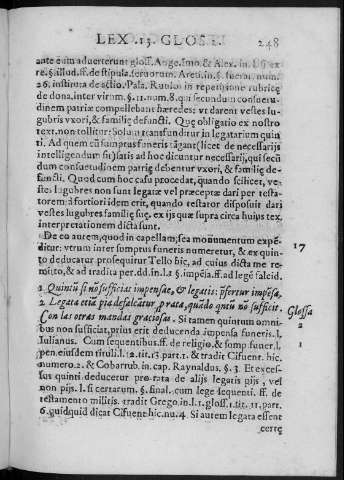 LEX .13. GLOS 2. 248
ante eum aduerterunt gloss. Ange. Imo. & Alex. in l. si ex
re. §. illud. ff. de stipula. seruorum. Areti. in §. fuerat. num.
26. instituta de actio. Pala. Rubio. in repetitione rubricę
de dona. inter virum. §. 11. num. 8. qui secundum consuetu-
dinem patriæ compellebant hæredes; vt darent vestes lu-
gubris vxori, & familiæ defuncti. Quę obligatio ex nostro
text. non tollitur: Solum transfunditur in legatarium quin
ti. Ad quem cũ sumptus funeris tãgant (licet de necessarijs
intelligendum sit) satis ad hoc dicuntur necessarij, qui secũ
dum consuetudinem patrię debentur vxori, & familię de-
functi. Quod cum hoc casu procedat, quando scilicet, ve-
stes lugubres non sunt legatæ vel præceptæ dari per testa-
torem: à fortiori idem erit, quando testator disposuit dari
vestes lugubres familię suę, ex ijs quæ supra circa huius tex.
interpretationem dicta sunt.
De eo autem, quod in capellam, seu monumentum expẽ-
ditur: vtrum inter sumptus funeris numeretur, & ex quin-
to deducatur prosequitur Tello hic, ad cuius dicta me re-
mitto, & ad tradita per. dd. in. l. 2 §. impẽsa. ff. ad legẽ falcid.
17
1 Quintũ si nõ sufficiat impensæ, & legatis: præfertur impẽsa,
2 Legata etiã pia defalcãtur, pro rata, quãdo quintũ nõ sufficit.
Con las otras mandas graciosas. Si tamen quintum omni-
Glossa
2
bus non sufficiat, prius erit deducenda impensa funeris. l.
Iulianus. Cum sequentibus. ff. de religio. & sump. funer. l.
1
pen. eiusdem tituli. l. 12. tit. 13 part. 1. & tradit Cifuent. hic.
numero. 2. & Cobarrub. in cap. Raynaldus. §. 3. Et exces-
sus quinti deducetur pro rata de alijs legatis pijs, vel
non pijs. l. si certarum. §. final. cum lege sequenti. ff. de
testamento militis. tradit Grego. in. l. 1. gloss. 1. tit. 11. part.
6. quidquid dicat Cifuent. hic. nu. 4. Si autem legata essent
certę